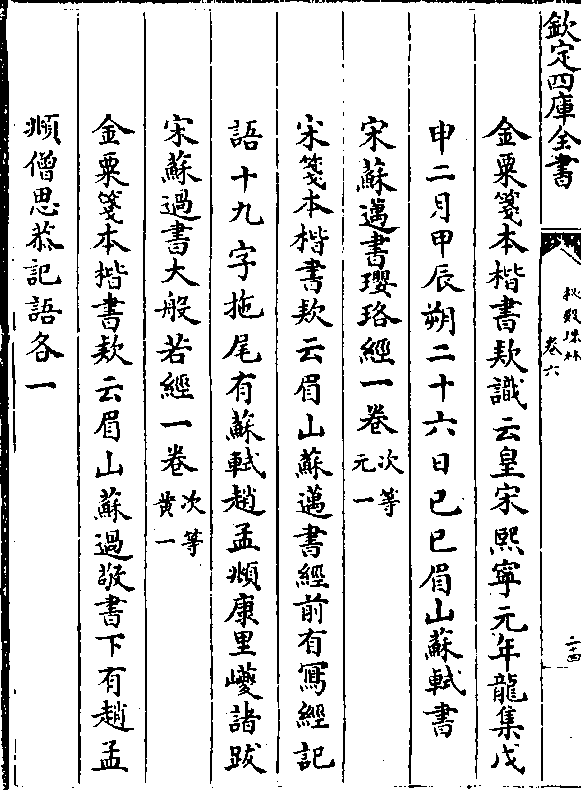 欽定四庫全書
秘殿珠林
卷六
二十四
金粟箋本楷書款識云皇宋熙寧元年龍集戊
申二月甲辰朔二十六日己巳眉山蘇軾書
宋蘇邁書瓔珞經一卷 次等 元一
宋箋本楷書款云眉山蘇邁書經前有寫經記
語十九字拖尾有蘇軾趙孟頫康里巙諸跋
宋蘇過書大般若經一卷 次等 黃一
金粟箋本楷書款云眉山蘇過敬書下有趙孟
頫僧思恭記語各一